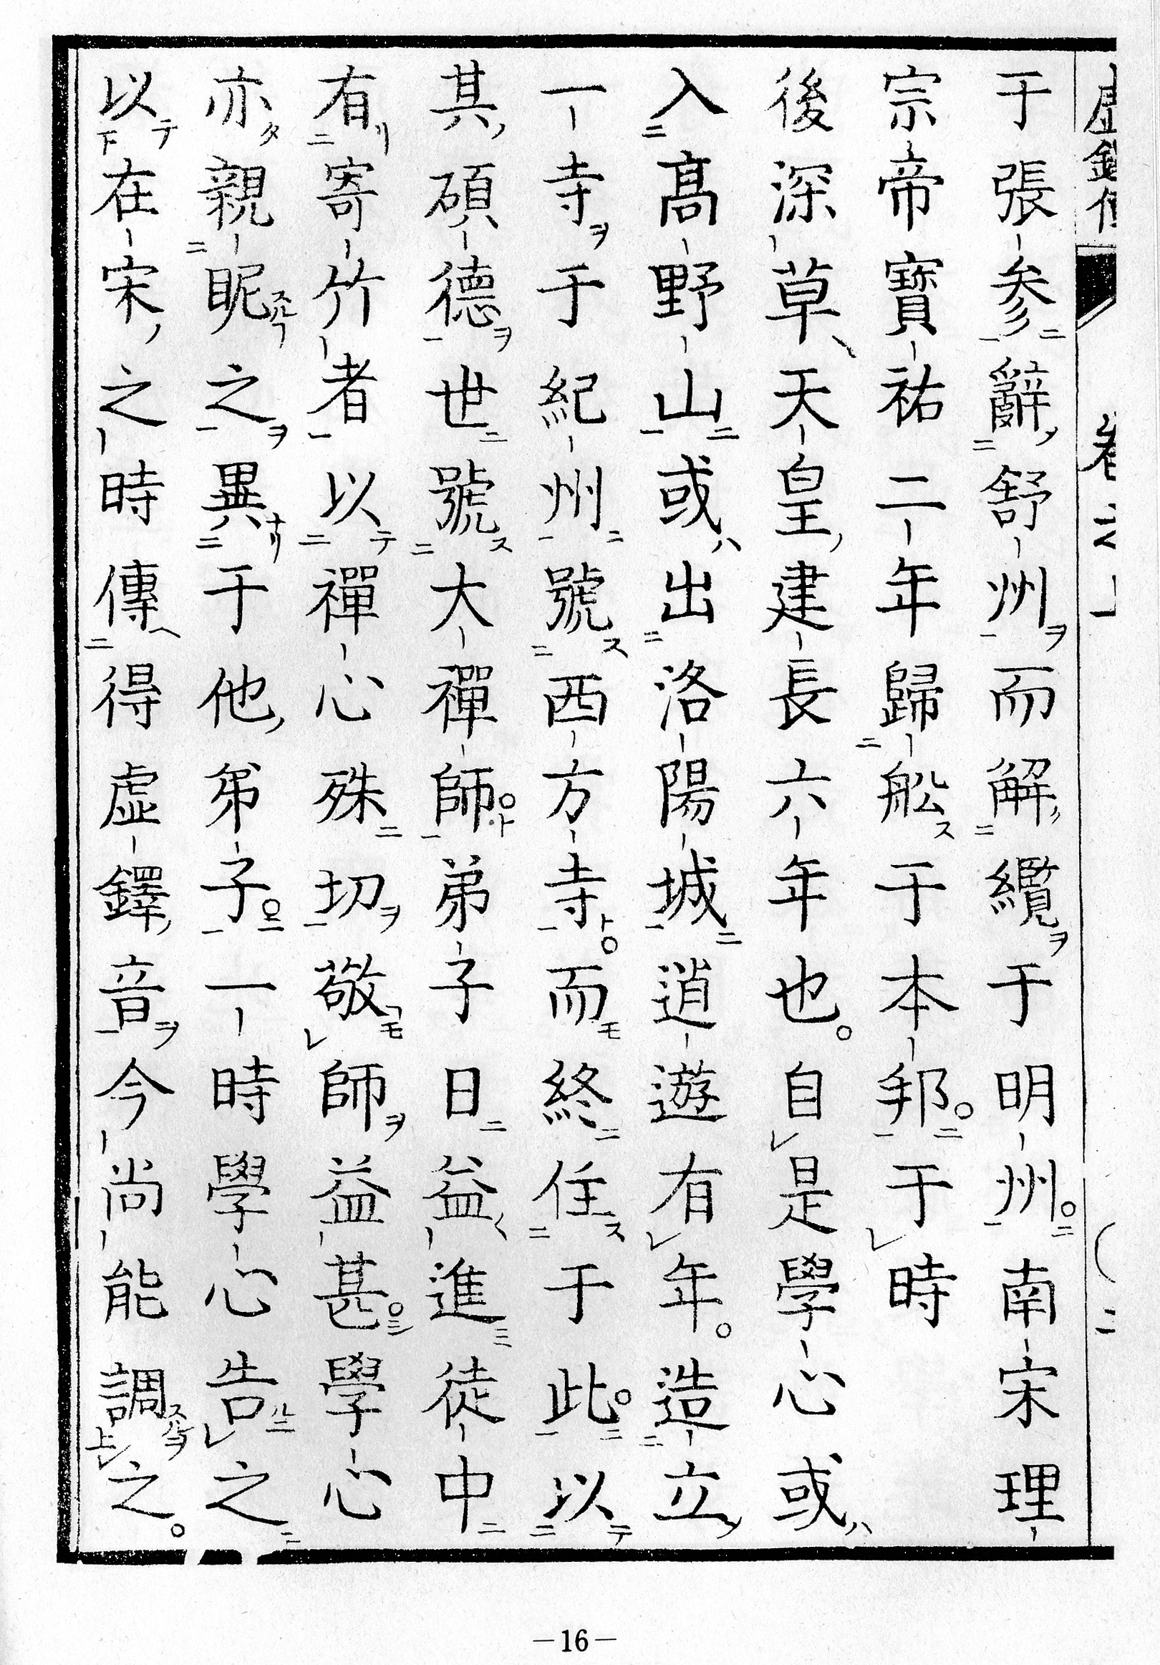 虛鐸傳
卷之上
于張參辭舒州而解纜于明州南宋理
宗帝寶祐二年歸船于本邦于時
後深草天皇建長六年也自是學心或
入高野山或出洛陽城逍遊有年造立
一寺于紀州號西方寺而終住于此以
其碩德世號大禪師弟子日益進徒中
有寄竹者以禪心殊切敬師益甚學心
亦親眤之異于他弟子一時學心告之
以在宋之時傳得虛鐸音今尚能調之
—16—